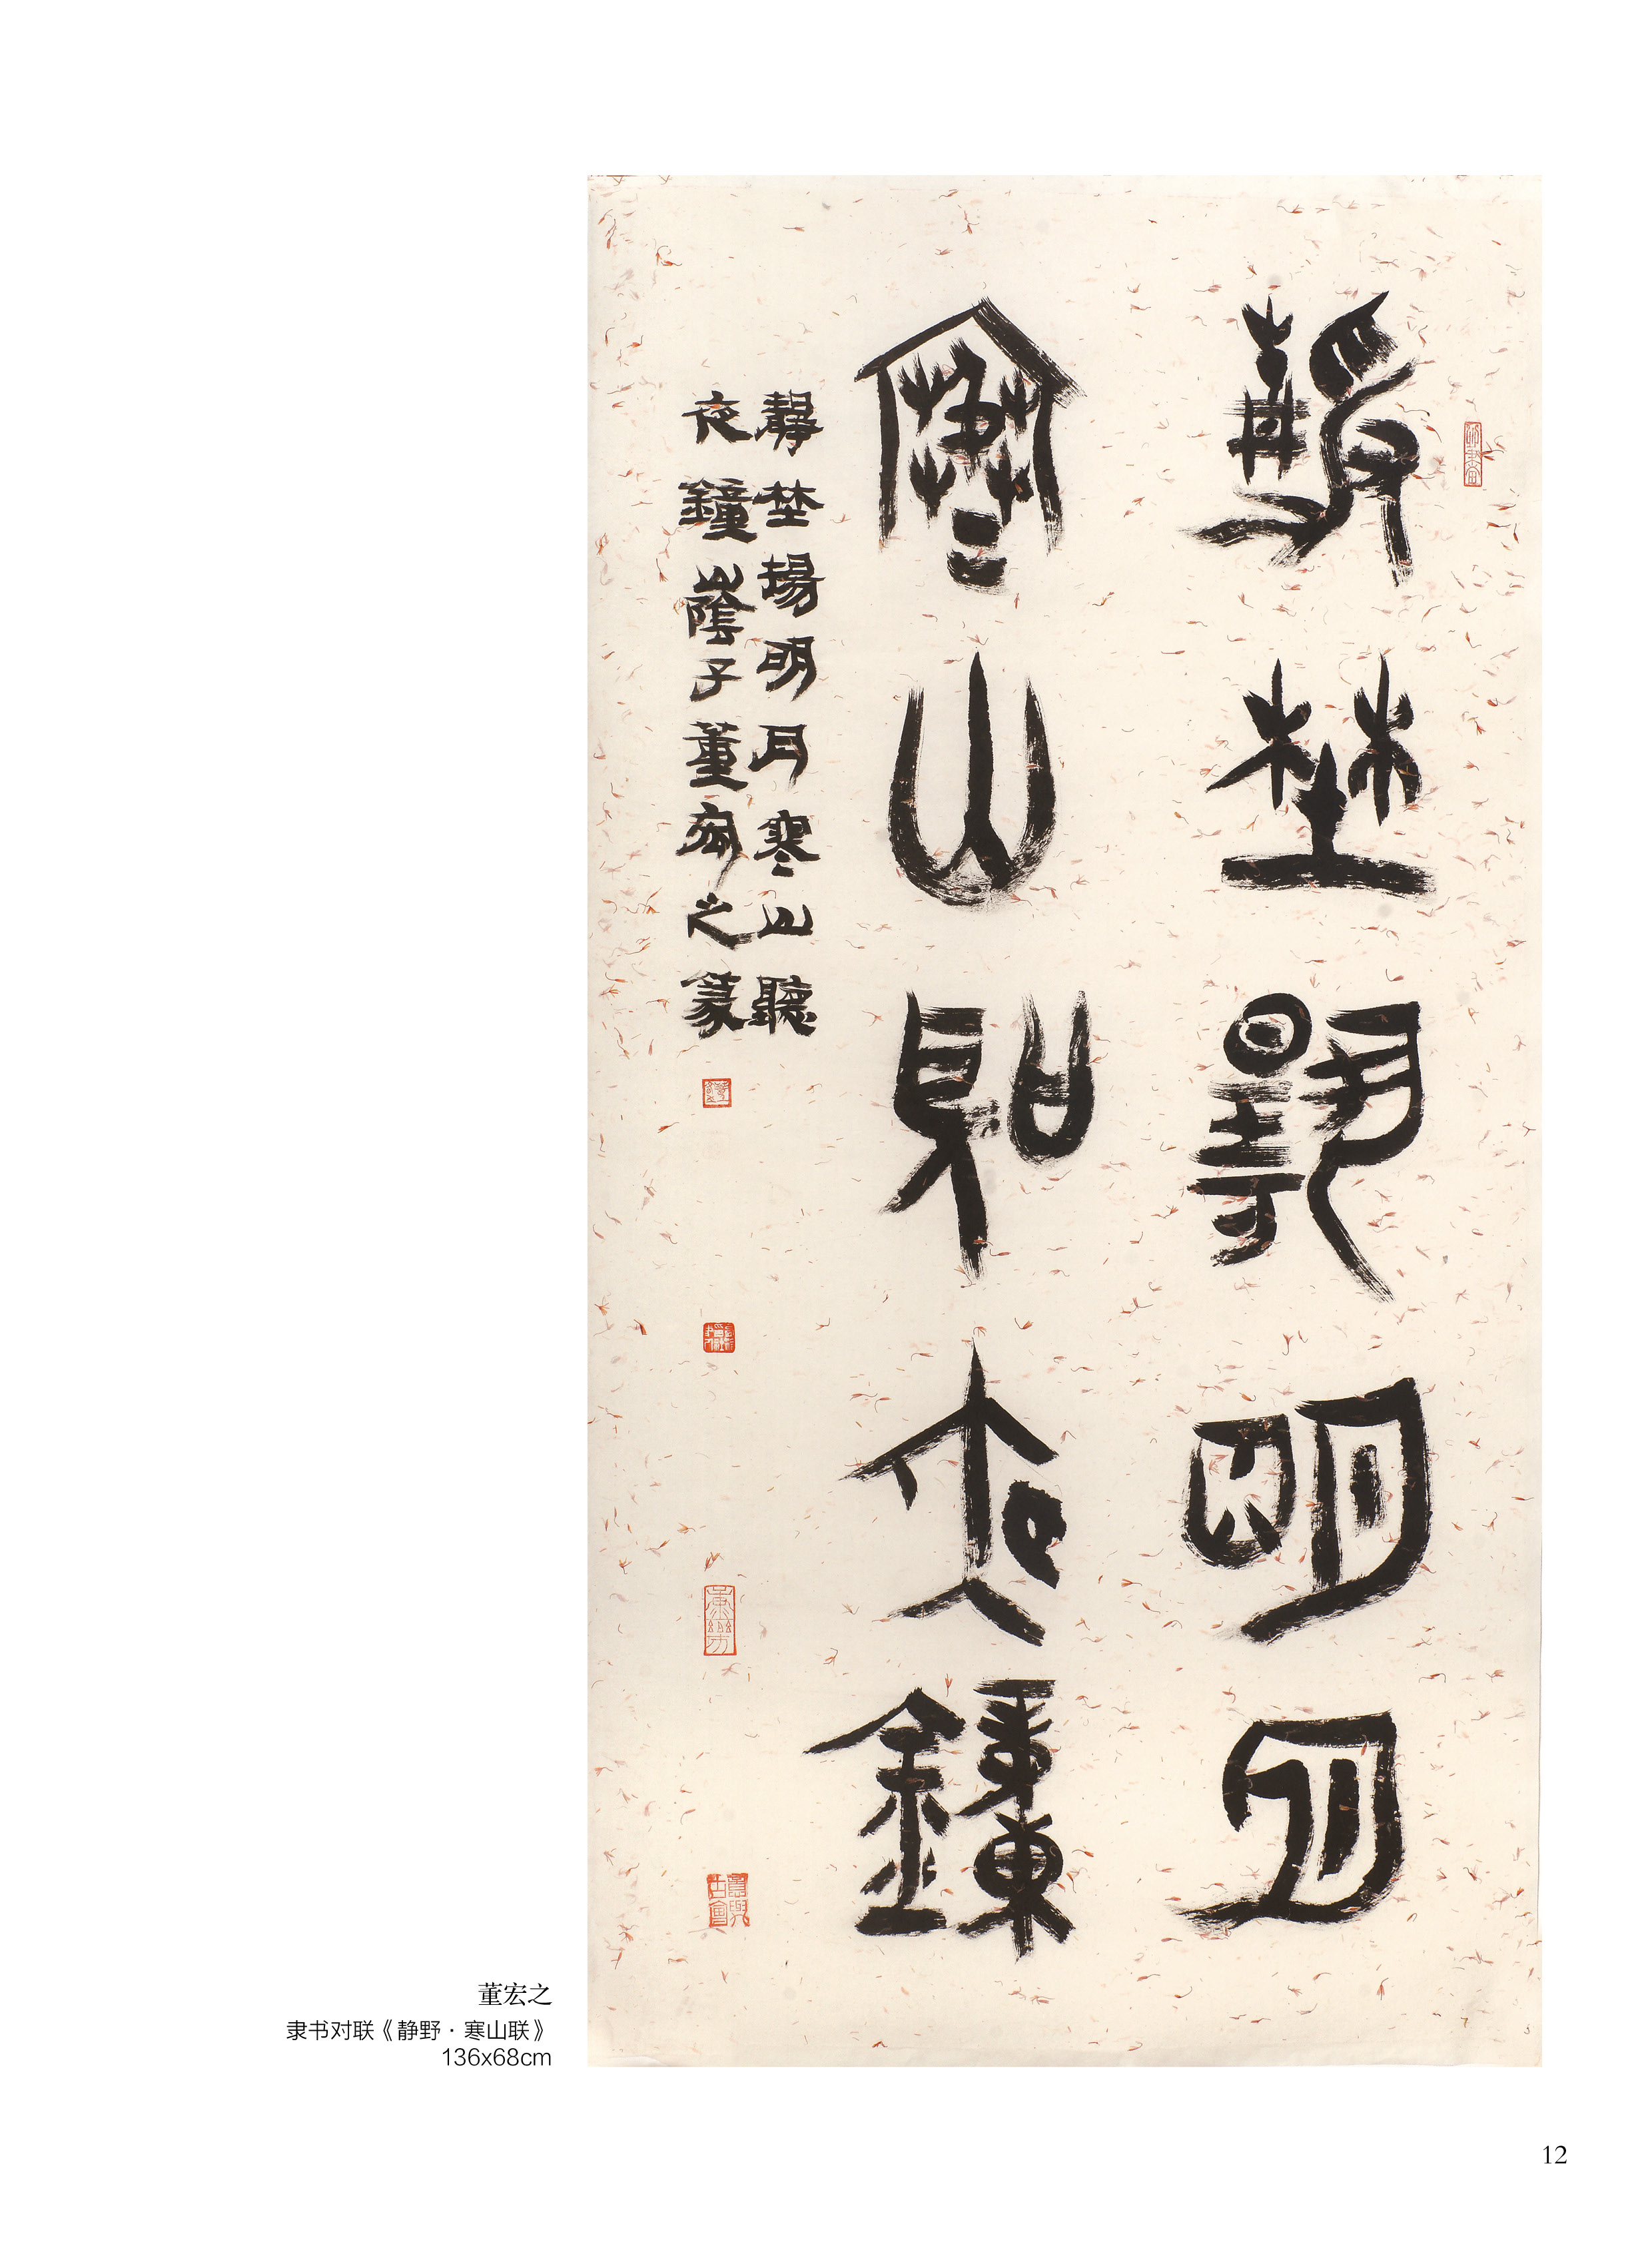 靜埜揚明月
寒山聽夜鐘
靜埜揚明月寒山聽
夜鐘山陰子董宏之篆
董宏之
隶书对联《静野·寒山联》
136x68cm
12